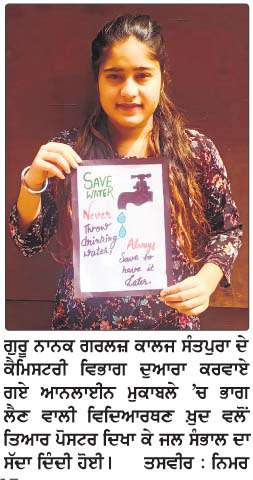 SAVE
WATER
Never
throw
drinking
water!
Always
Save to
have it
Later.
ਗੁਰੂ ਨਾਨਕ ਗਰਲਜ਼ ਕਾਲਜ ਸੰਤਪੁਰਾ ਦੇ
ਕੈਮਿਸਟਰੀ ਵਿਭਾਗ ਦੁਆਰਾ ਕਰਵਾਏ
ਗਏ ਆਨਲਾਈਨ ਮੁਕਾਬਲੇ ’ਚ ਭਾਗ
ਲੈਣ ਵਾਲੀ ਵਿਦਿਆਰਥਣ ਖ਼ੁਦ ਵਲੋਂ
ਤਿਆਰ ਪੋਸਟਰ ਦਿਖਾ ਕੇ ਜਲ ਸੰਭਾਲ ਦਾ
ਸੱਦਾ ਦਿੰਦੀ ਹੋਈ। ਤਸਵੀਰ : ਨਿਮਰ